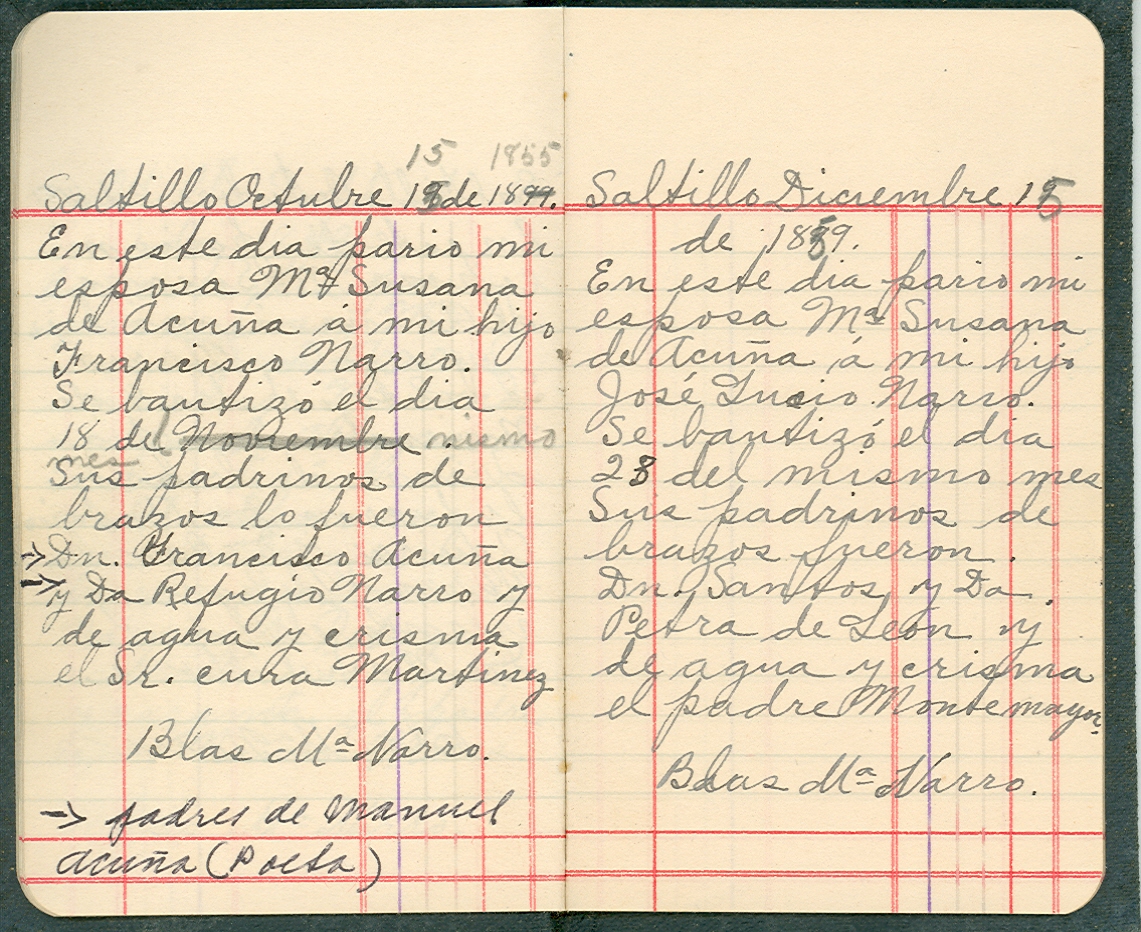 15 1855
Saltillo Octubre 15 de 18
En este dia pario mi
esposa Mª Susana
de Acuña á mi hijo
Francisco Narro.
Se bautizó el dia
18 de Noviembre mismo
mes
Sus padrinos de
brazos lo fueron
-> Dn. Francisco Acuña
-> y Da Refugio Narro y
de agua y crisma
el Sr. cura Martinez
Blas Mª Narro.
-> padres de Manuel
Acuña (Poeta)
Saltillo Diciembre 15
de 1859.
En este dia pario mi
esposa Mª Susana
de Acuña á mi hijo
José Lucio Narro.
Se bautizó el dia
23 del mismo mes
Sus padrinos de
brazos fueron.
Dn. Santos y Da.
Petra de León y
de agua y crisma
el padre Montemayor.
Blas Mª Narro.